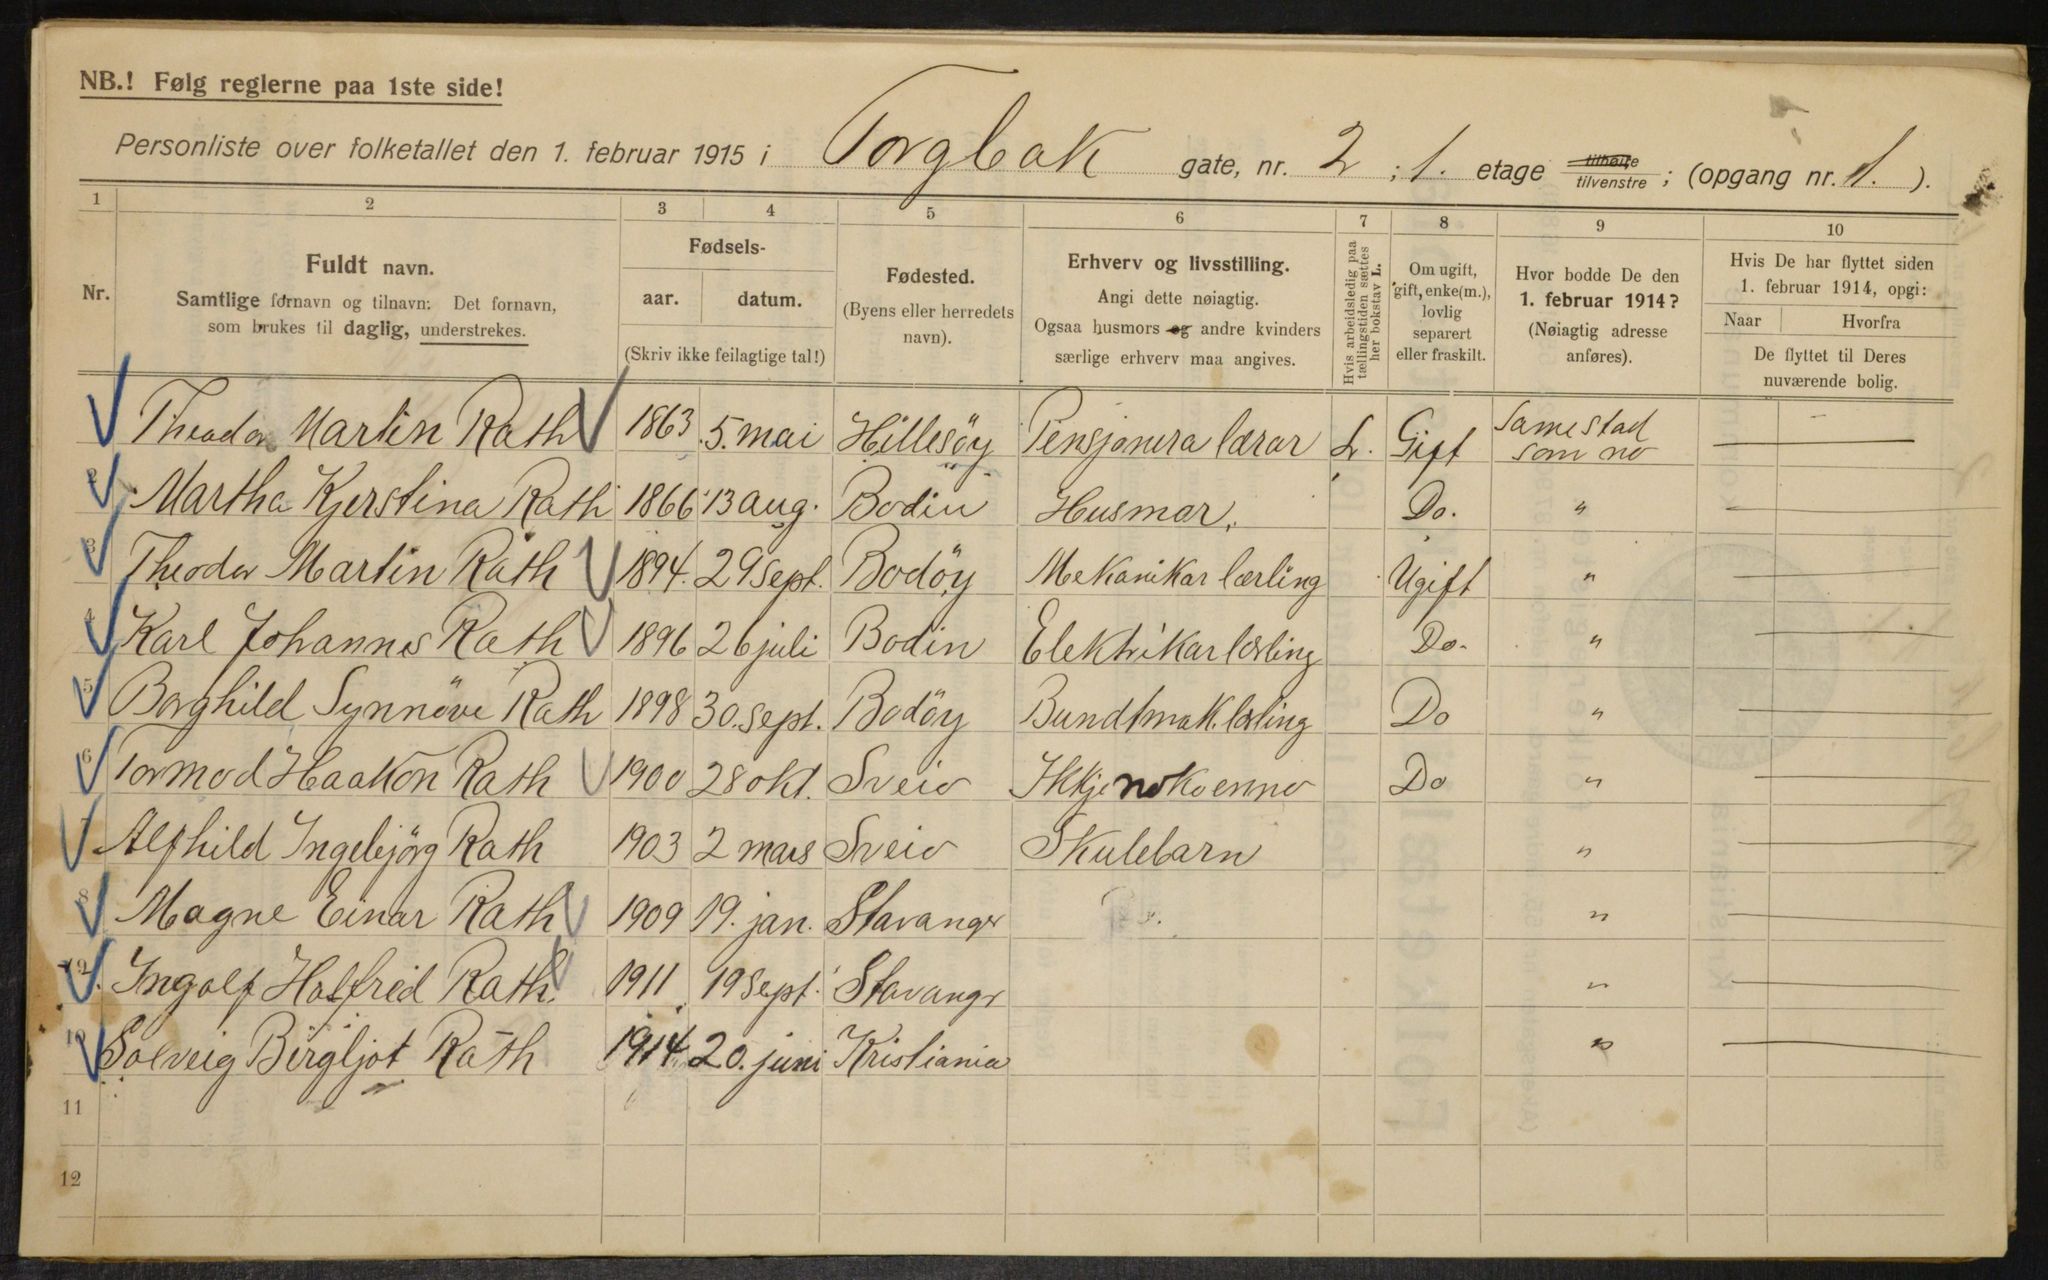 NB.! Følg reglerne paa 1ste side!
Personliste over folketallet den 1. februar 1915 i Torgbak gate, nr. 2 ; 1. etage tilhøire tilvenstre ; (opgang nr. 1. ).
1 2 3 4 5 6 7 8 9 10
Nr.
Fuldt navn.
Samtlige fornavn og tilnavn: Det fornavn,
som brukes til daglig, understrekes.
Fødsels-
aar. datum.
(Skriv ikke feilagtige tal!)
Fødested.
(Byens eller herredets
navn).
Erhverv og livsstilling.
Angi dette nøiagtig.
Ogsaa husmors og andre kvinders
særlige erhverv maa angives.
Hvis arbeidsledig paa
tællingstiden sættes
her bokstav L.
Om ugift,
gift, enke(m.),
lovlig
separert
eller fraskilt.
Hvor bodde De den
1. februar 1914?
(Nøiagtig adresse
anføres).
Hvis De har flyttet siden
1. februar 1914, opgi:
Naar Hvorfra
De flyttet til Deres
nuværende bolig.
Theodor Martin Rath 1863 5. mai Hillesöy Pensjonera lærar L. Gift Samestad som no
2 Martha Kjerstina Rath 1866 13 aug. Bodin Husmor. Do. "
3 Theodor Martin Rath 1894. 29 sept. Bodöy Mekanikar lærling Ugift "
4 Karl Johannes Rath 1896 26 juli Bodin Elektrikar lærling Do. "
5 Borghild Synnöve Rath 1898 30. sept. Bodöy Bundtmak. lærling Do "
6 Tormod Haakon Rath 1900 28 okt. Sveio Ikkje noko enno Do "
7 Alfhild Ingebjörg Rath 1903 2 mars Sveio Skulebarn "
8 Magne Einar Rath 1909 19. jan. Stavanger "
9 Ingolf Halfred Rath. 1911 19 sept. Stavangr "
10 Solveig Birgljot Rath 1914 20. juni Kristiania "
11
12